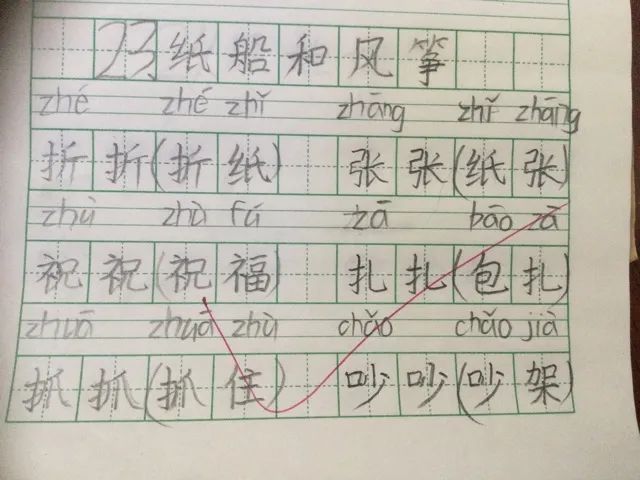 23 纸船和风筝
zhé zhé zhǐ zhāng zhǐ zhāng
折 折(折纸) 张 张(纸张)
zhù zhù fú zā bāo zā
祝 祝(祝福) 扎 扎(包扎)
zhuā zhuā zhù chǎo chǎo jià
抓 抓(抓住) 吵 吵(吵架)